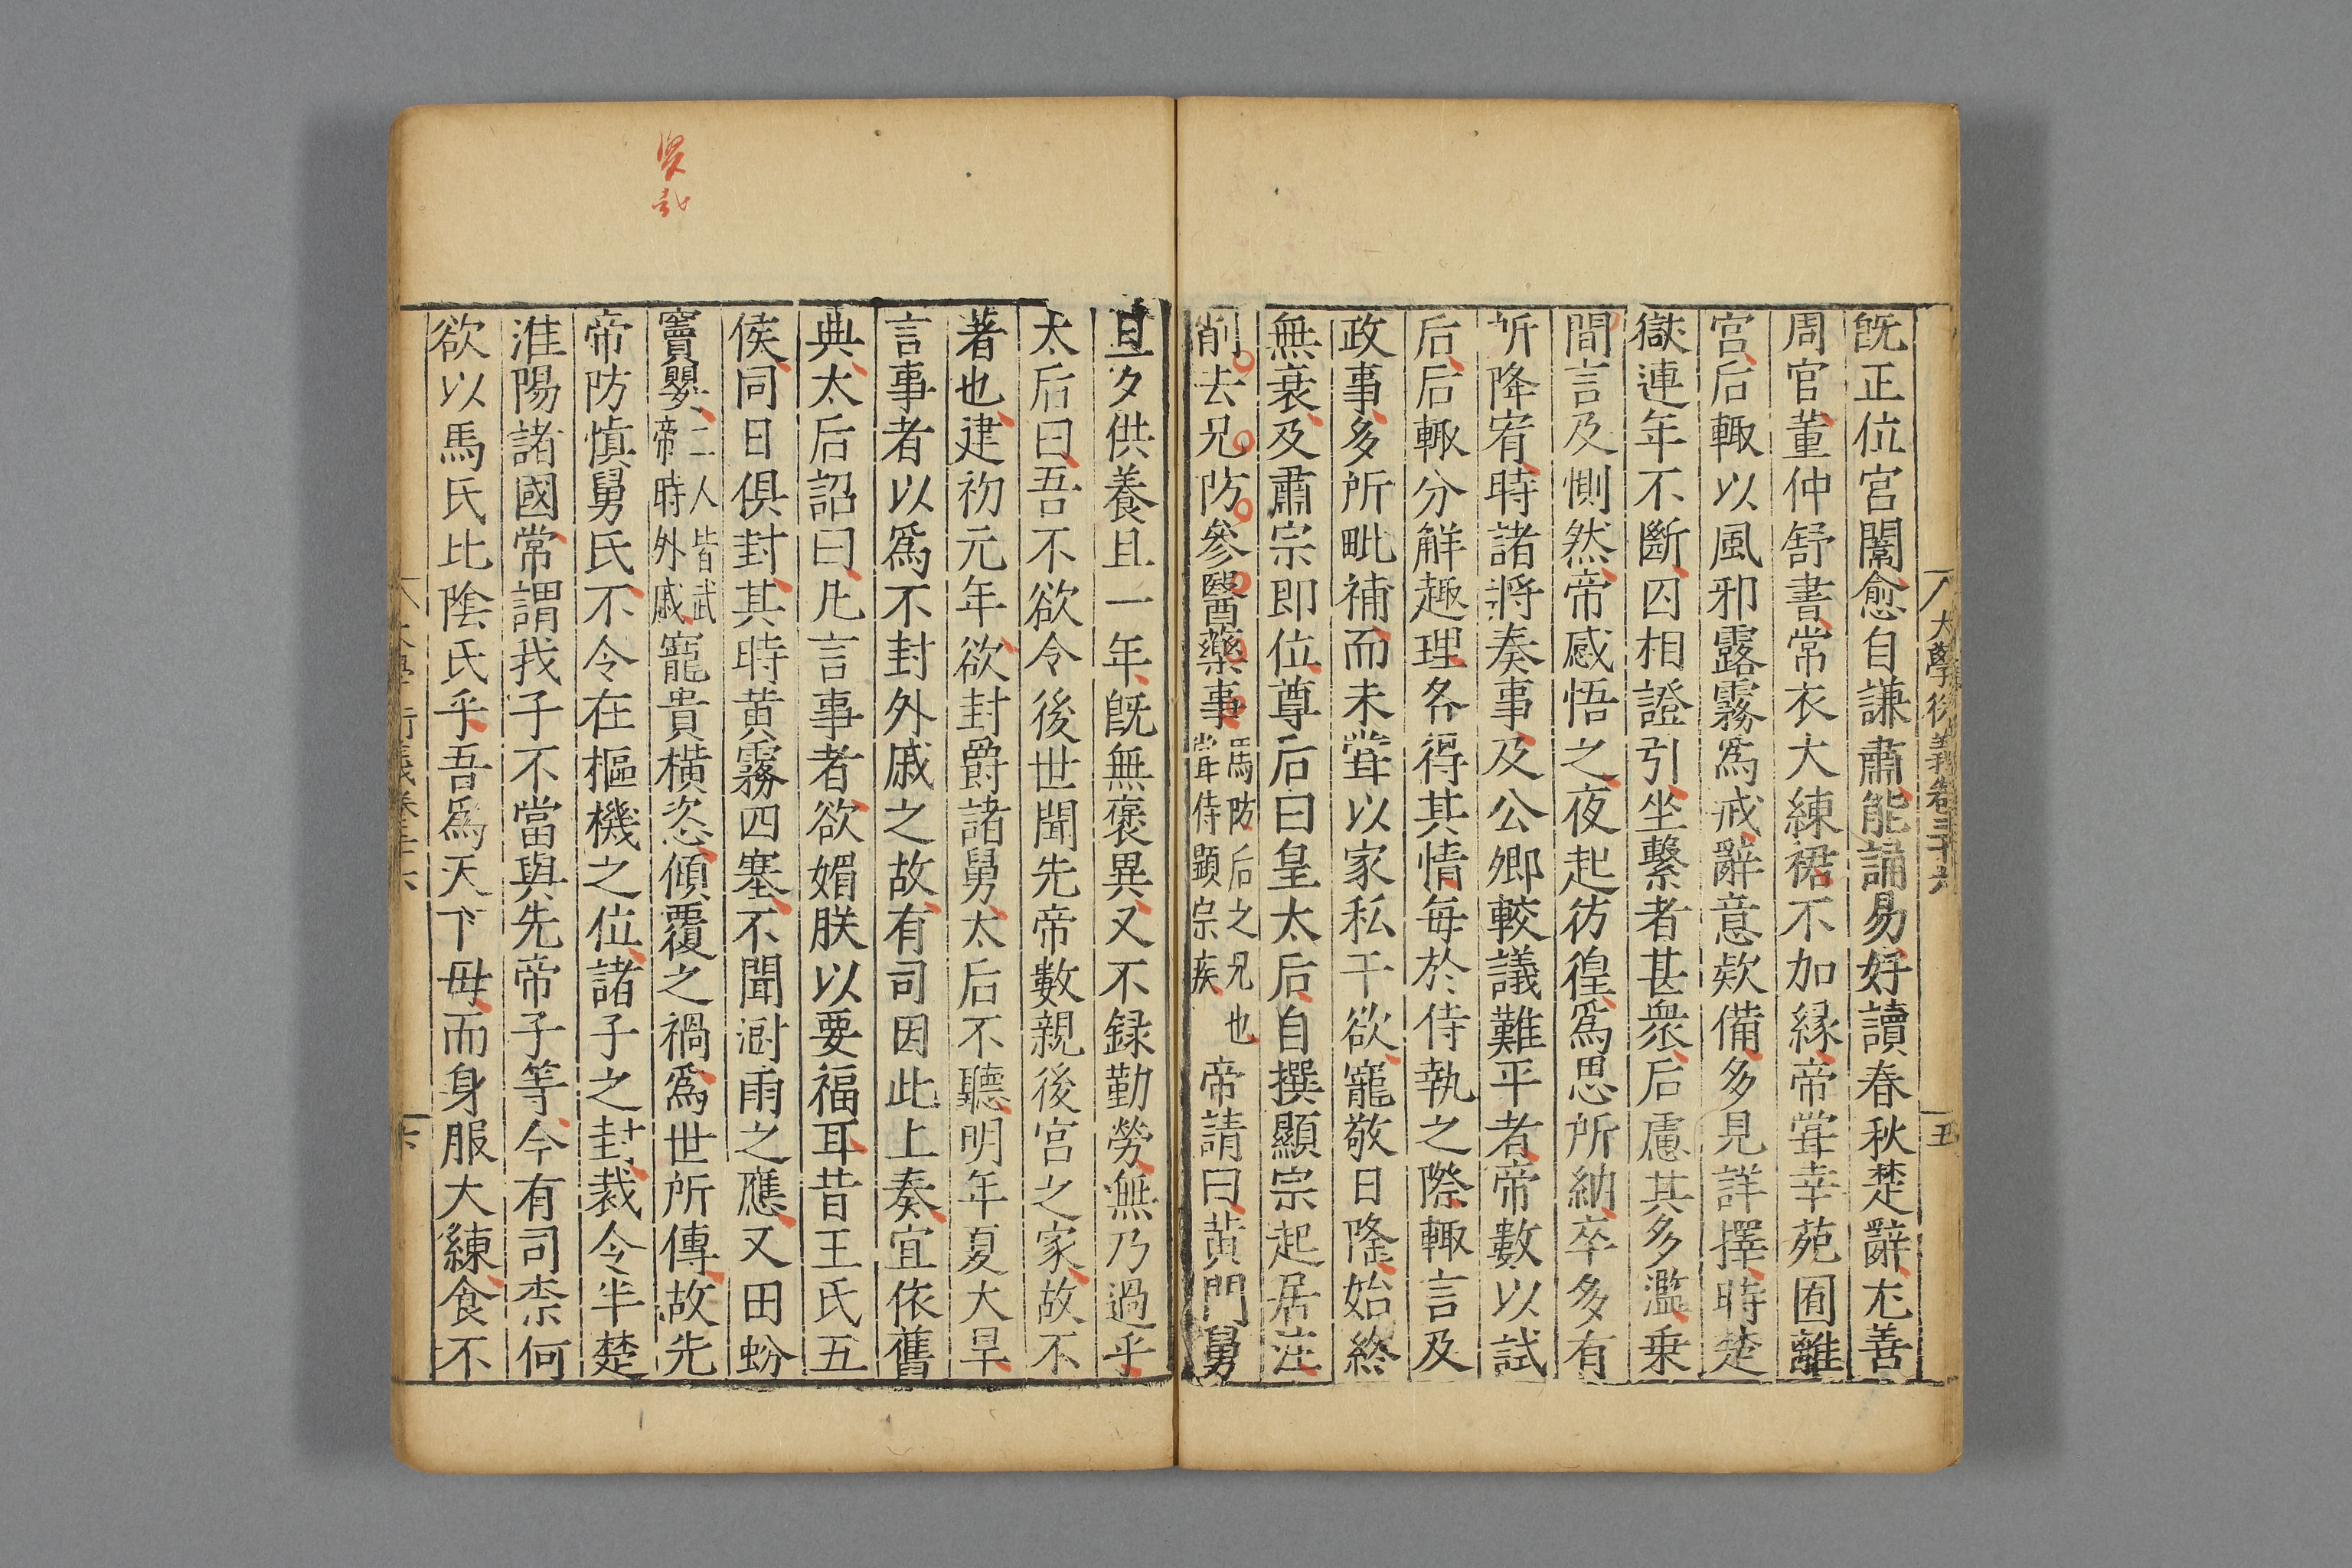 大學衍義卷三十六
五
旣正位宮闈愈自謙肅能誦易好讀春秋楚辭尤善
周官董仲舒書常衣大練裙不加緣帝甞幸苑囿離
宮后輒以風邪露霧爲戒辭意欵備多見詳擇時楚
獄連年不斷囚相證引坐繫者甚衆后慮其多濫乗
間言及惻然帝感悟之夜起彷徨爲思所納卒多有
所降宥時諸將奏事及公卿較議難平者帝數以試
后后輒分觧趣理各得其情每於侍執之際輒言及
政事多所毗補而未甞以家私干欲寵敬日隆始終
無衰及肅宗即位尊后曰皇太后自撰顯宗起居注
削去兄防參醫藥事馬防后之兄也甞侍顯宗疾帝請曰黃門舅
旦夕供養且一年旣無褒異又不録勤勞無乃過乎
太后曰吾不欲令後世聞先帝數親後宮之家故不
著也建初元年欲封爵諸舅太后不聽明年夏大旱
言事者以爲不封外戚之故有司因此上奏宜依舊
典太后詔曰凡言事者欲媚朕以要福耳昔王氏五
侯同日俱封其時黃霧四塞不聞澍雨之應又田蚡
竇嬰二人皆武帝時外戚寵貴橫恣傾覆之禍爲世所傳故先
帝防慎舅氏不令在樞機之位諸子之封裁令半楚
淮陽諸國常謂我子不當與先帝子等今有司柰何
欲以馬氏比陰氏乎吾爲天下毋而身服大練食不